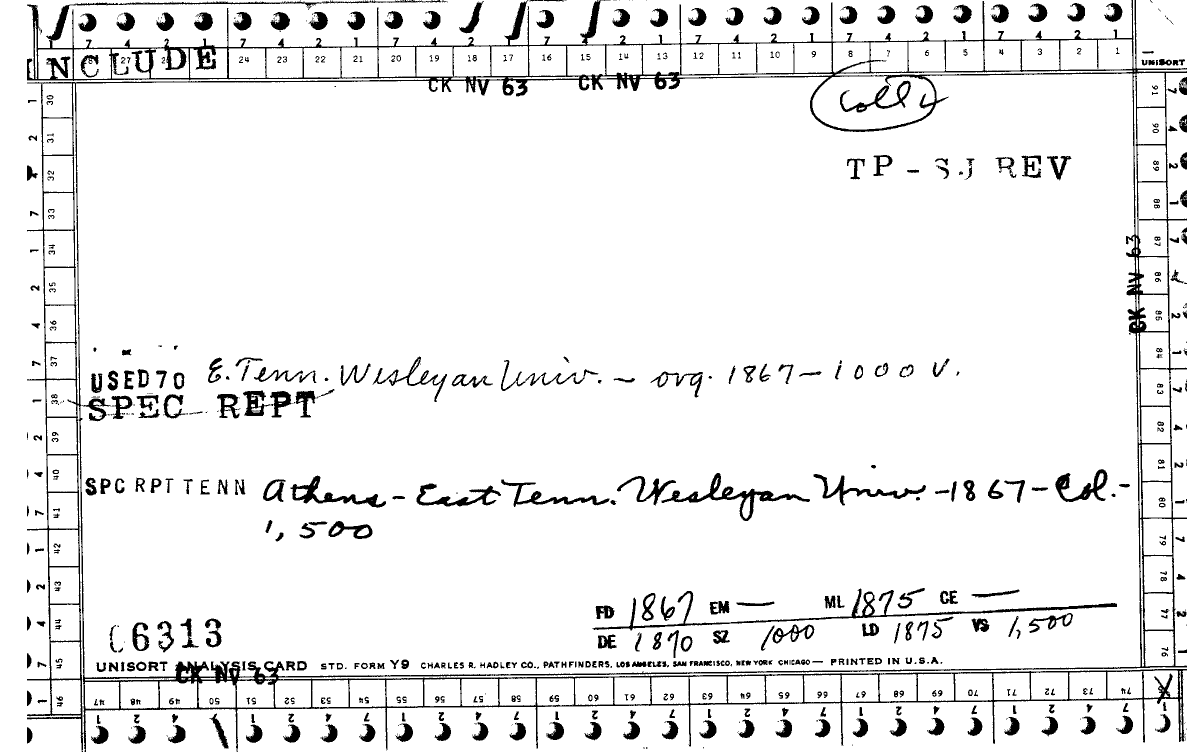 7 4 2 1 7 4 2 1 7 4 2 1 7 4 2 1 7 4 2 1 7 4 2 1
INCLUDE 24 23 22 21 20 19 18 17 16 15 14 13 12 11 10 9 8 7 6 5 4 3 2 1
UNISORT
CK NV 63 CK NV 63
Coll 4
TP-SJ REV
CK NV 63
USED70 E. Tenn. Wesleyan Univ. - org. 1867-1000 V.
SPEC REPT
SPC RPT TENN Athens - East Tenn. Wesleyan Univ. -1867- Col.-
1,500
FD 1867 EM — ML 1875 CE —
DE 1870 SZ 1000 LD 1875 VS 1,500
06313
UNISORT ANALYSIS CARD STD. FORM Y9 CHARLES R. HADLEY CO., PATHFINDERS, LOS ANGELES, SAN FRANCISCO, NEW YORK CHICAGO — PRINTED IN U.S.A.
CK NV 63
30 31 32 33 34 35 36 37 38 39 40 41 42 43 44 45 46
91 90 89 88 87 86 85 84 83 82 81 80 79 78 77 76
47 48 49 50 51 52 53 54 55 56 57 58 59 60 61 62 63 64 65 66 67 68 69 70 71 72 73 74